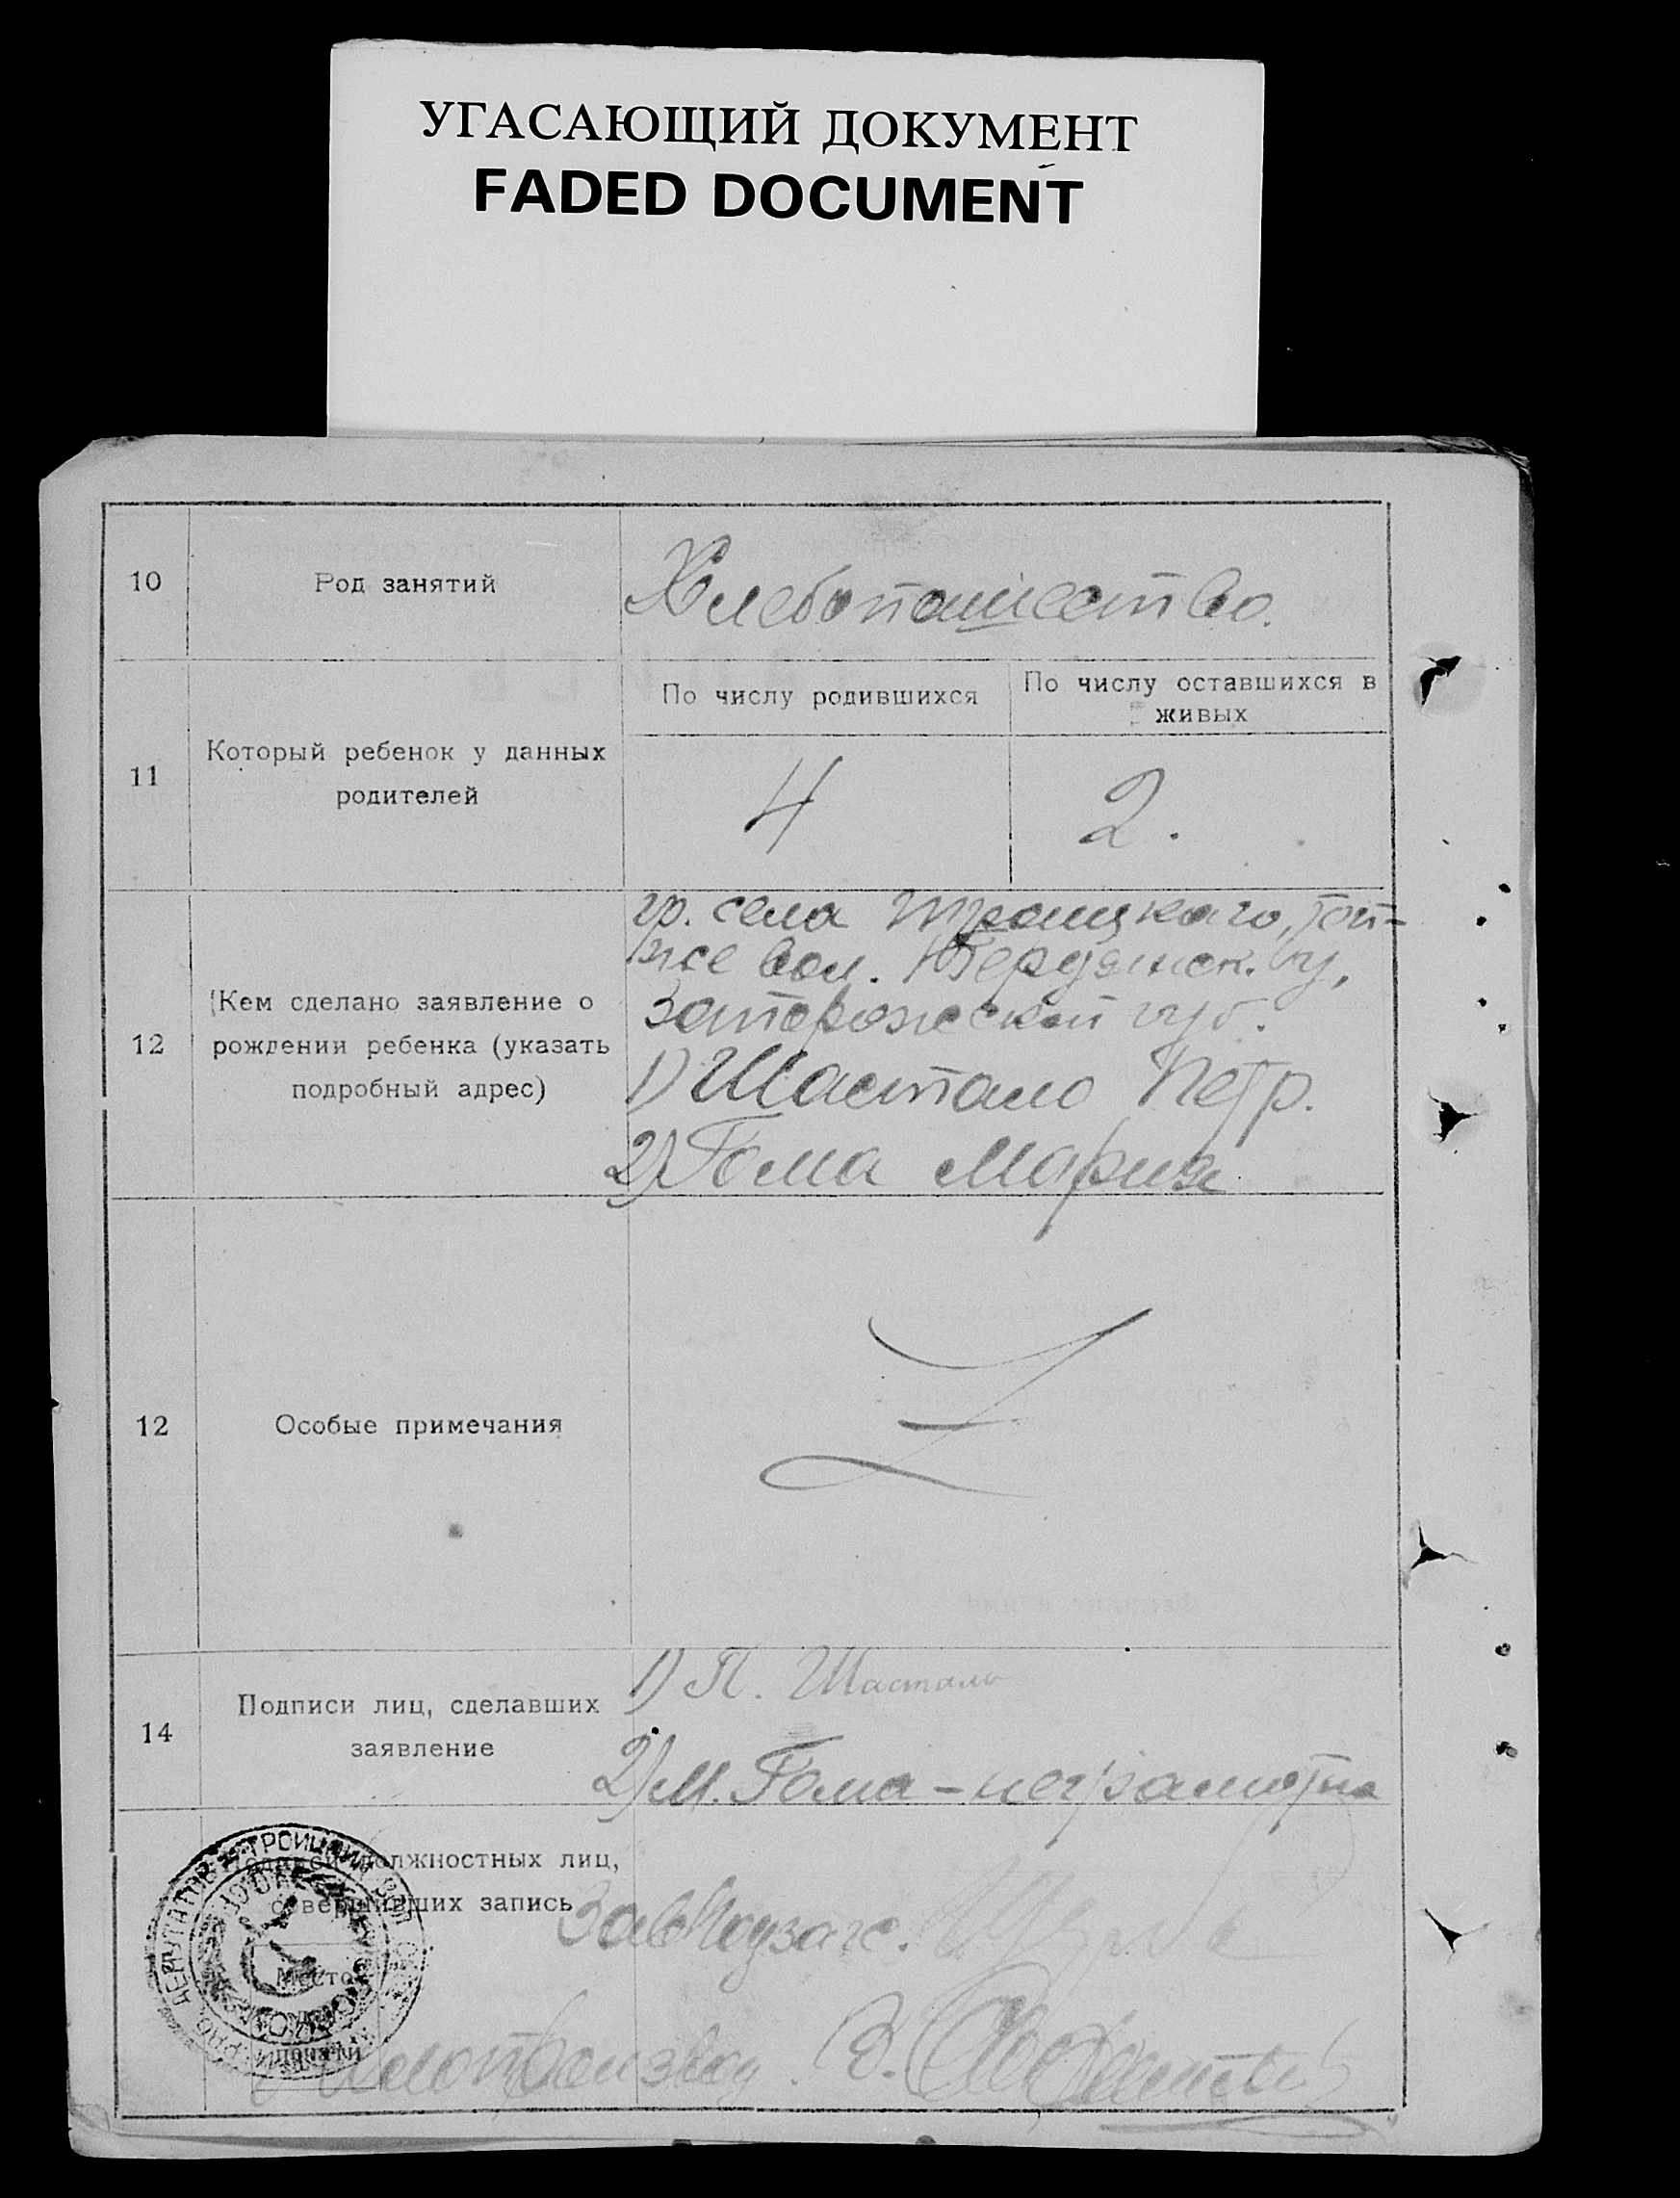 УГАСАЮЩИЙ ДОКУМЕНТ
FADED DOCUMENT
10
Род занятий
Хлебопашество.
11
Который ребенок у данных
родителей
По числу родившихся
По числу оставшихся в
живых
4
2.
12
(Кем сделано заявление о
рождении ребенка (указать
подробный адрес)
гр. села Троицкаго, той-
же вол. Бердянск. у,
Запорожской губ.
1) Шастало Петр.
2) Гома Мария
12
Особые примечания
14
Подписи лиц, сделавших
заявление
1) П. Шастало
2) М. Гома - неграмотна
Подписи должностных лиц,
совершивших запись
Место
печати